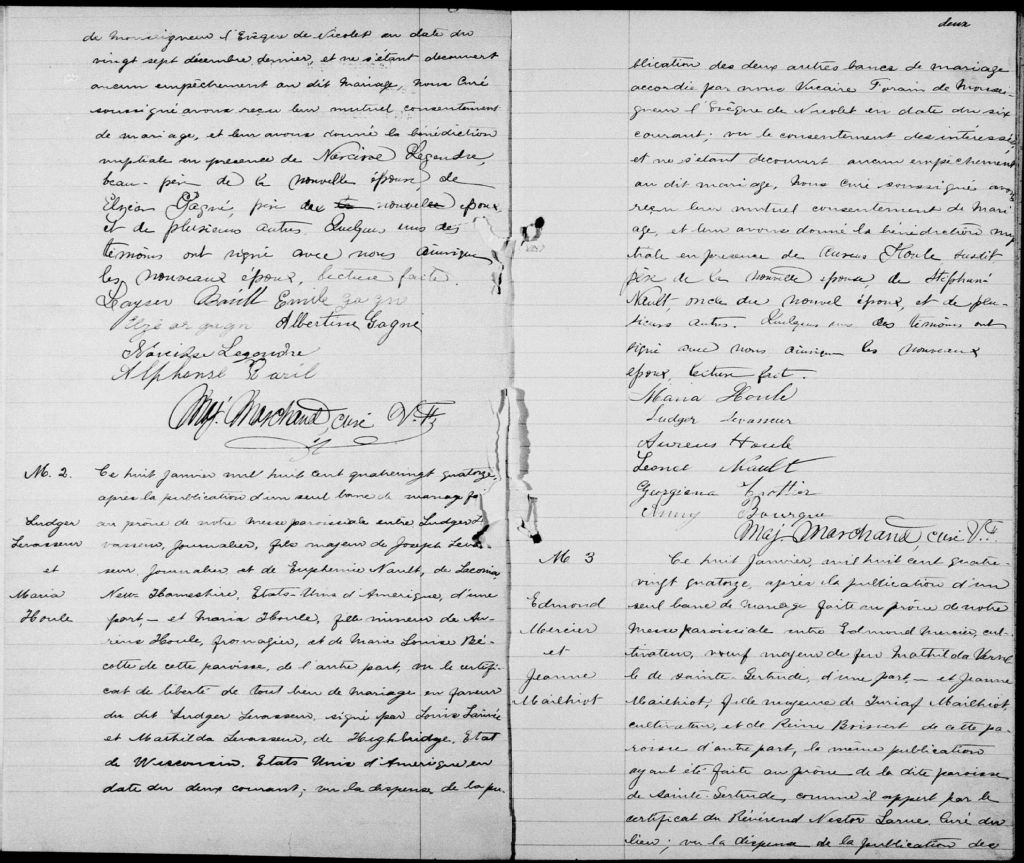 de Monseigneur l'Evêque de Nicolet en date du
vingt sept décembre dernier, et ne s'étant decouvert
aucun empêchement au dit mariage, nous Curé
soussigné avons reçu leur mutuel consentement
de mariage, et leur avons donné la bénédiction
nuptiale en presence de Narcisse Legendre,
beau-père de la nouvelle épouse de
Elzéar Gagné, père du nouvel époux
et de plusieurs autres. Quelques uns des
témoins ont signé avec nous ainsique
les nouveaux époux, lecture faite.
Emile gagn
Elzéar gagn Albertine Gagné
Narcisse Legendre
Alphonse Baril
Maj. Marchand, curé V. F.
M. 2.
Ludger
Levasseur
et
Maria
Houle
Ce huit Janvier mil huit cent quatrevingt quatorze,
après la publication d'un seul banc de mariage fai
au prône de notre messe paroissiale entre Ludger Le
vasseur, Journalier, fils majeur de Joseph Levas
seur, Journalier et de Euphémie Nault, de Laconia,
New-Hamsshire, Etats-Unis d'Amérique, d'une
part, — et Maria Houle, fille mineure de Au-
rius Houle, fromagier, et de Marie Louise Bé-
cotte de cette paroisse, de l'autre part, vu le certifi-
cat de liberté de tout lien de mariage en faveur
du dit Ludger Levasseur, signé par Louis
et Mathilda Levasseur, de Highbridge, Etat
de Wisconsin, Etats Unis d'Amérique en
date du deux courant; vu la dispense de la pu-
deux
blication des deux autres bancs de mariage
accordée par nous Vicaire Forain de Monsei-
gneur l'Evêque de Nicolet en date du six
courant; vu le consentement des intéressés,
et ne s'étant decouvert aucun empêchement
au dit mariage, Nous Curé soussigné avons
reçu leur mutuel consentement de mari
age, et leur avons donné la bénédiction nup
tiale en presence de Aureus Houle susdit
père de la nouvelle épouse, de Stéphane
Nault, oncle du nouvel époux, et de plu-
sieurs autres. Quelques uns des témoins ont
signé avec nous ainsique les nouveaux
époux, lecture faite.
Maria Houle
Ludger Levasseur
Aureus Houle
Leonce Nault
Georgiana Trottier
Bourque
Maj. Marchand, curé V. F.
M 3
Edmond
Mercier
et
Jeanne
Mailhiot
Ce huit Janvier, mil huit cent quatre-
vingt quatorze, après la publication d'un
seul banc de mariage faite au prône de notre
messe paroissiale entre Edmond Mercier, cul-
tivateur, veuf majeur de feu Mathilda
de sainte-Gertrude, d'une part, — et Jeanne
Mailhiot, fille majeure de Mailhiot
cultivateur, et de Reine Boisvert de cette pa-
roisse d'autre part, la même publication
ayant été faite au prône de la dite paroisse
de Sainte-Gertrude, comme il appert par le
certificat du Révérend Nestor Larue, Curé du
lieu; vu la dispense de la publication des